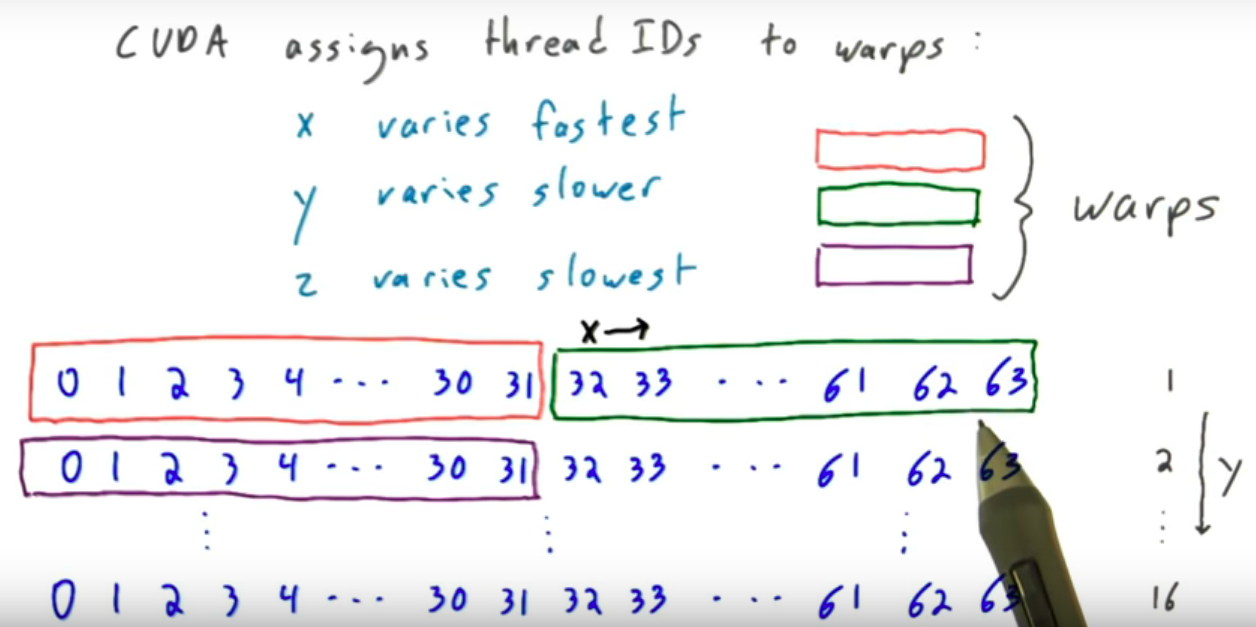 CUDA assigns thread IDs to warps :
x varies fastest
y varies slower
z varies slowest
warps
x→
0 1 2 3 4 ... 30 31 32 33 ... 61 62 63 1
0 1 2 3 4 ... 30 31 32 33 ... 61 62 63 2
y
0 1 2 3 4 ... 30 31 32 33 ... 61 62 63 16